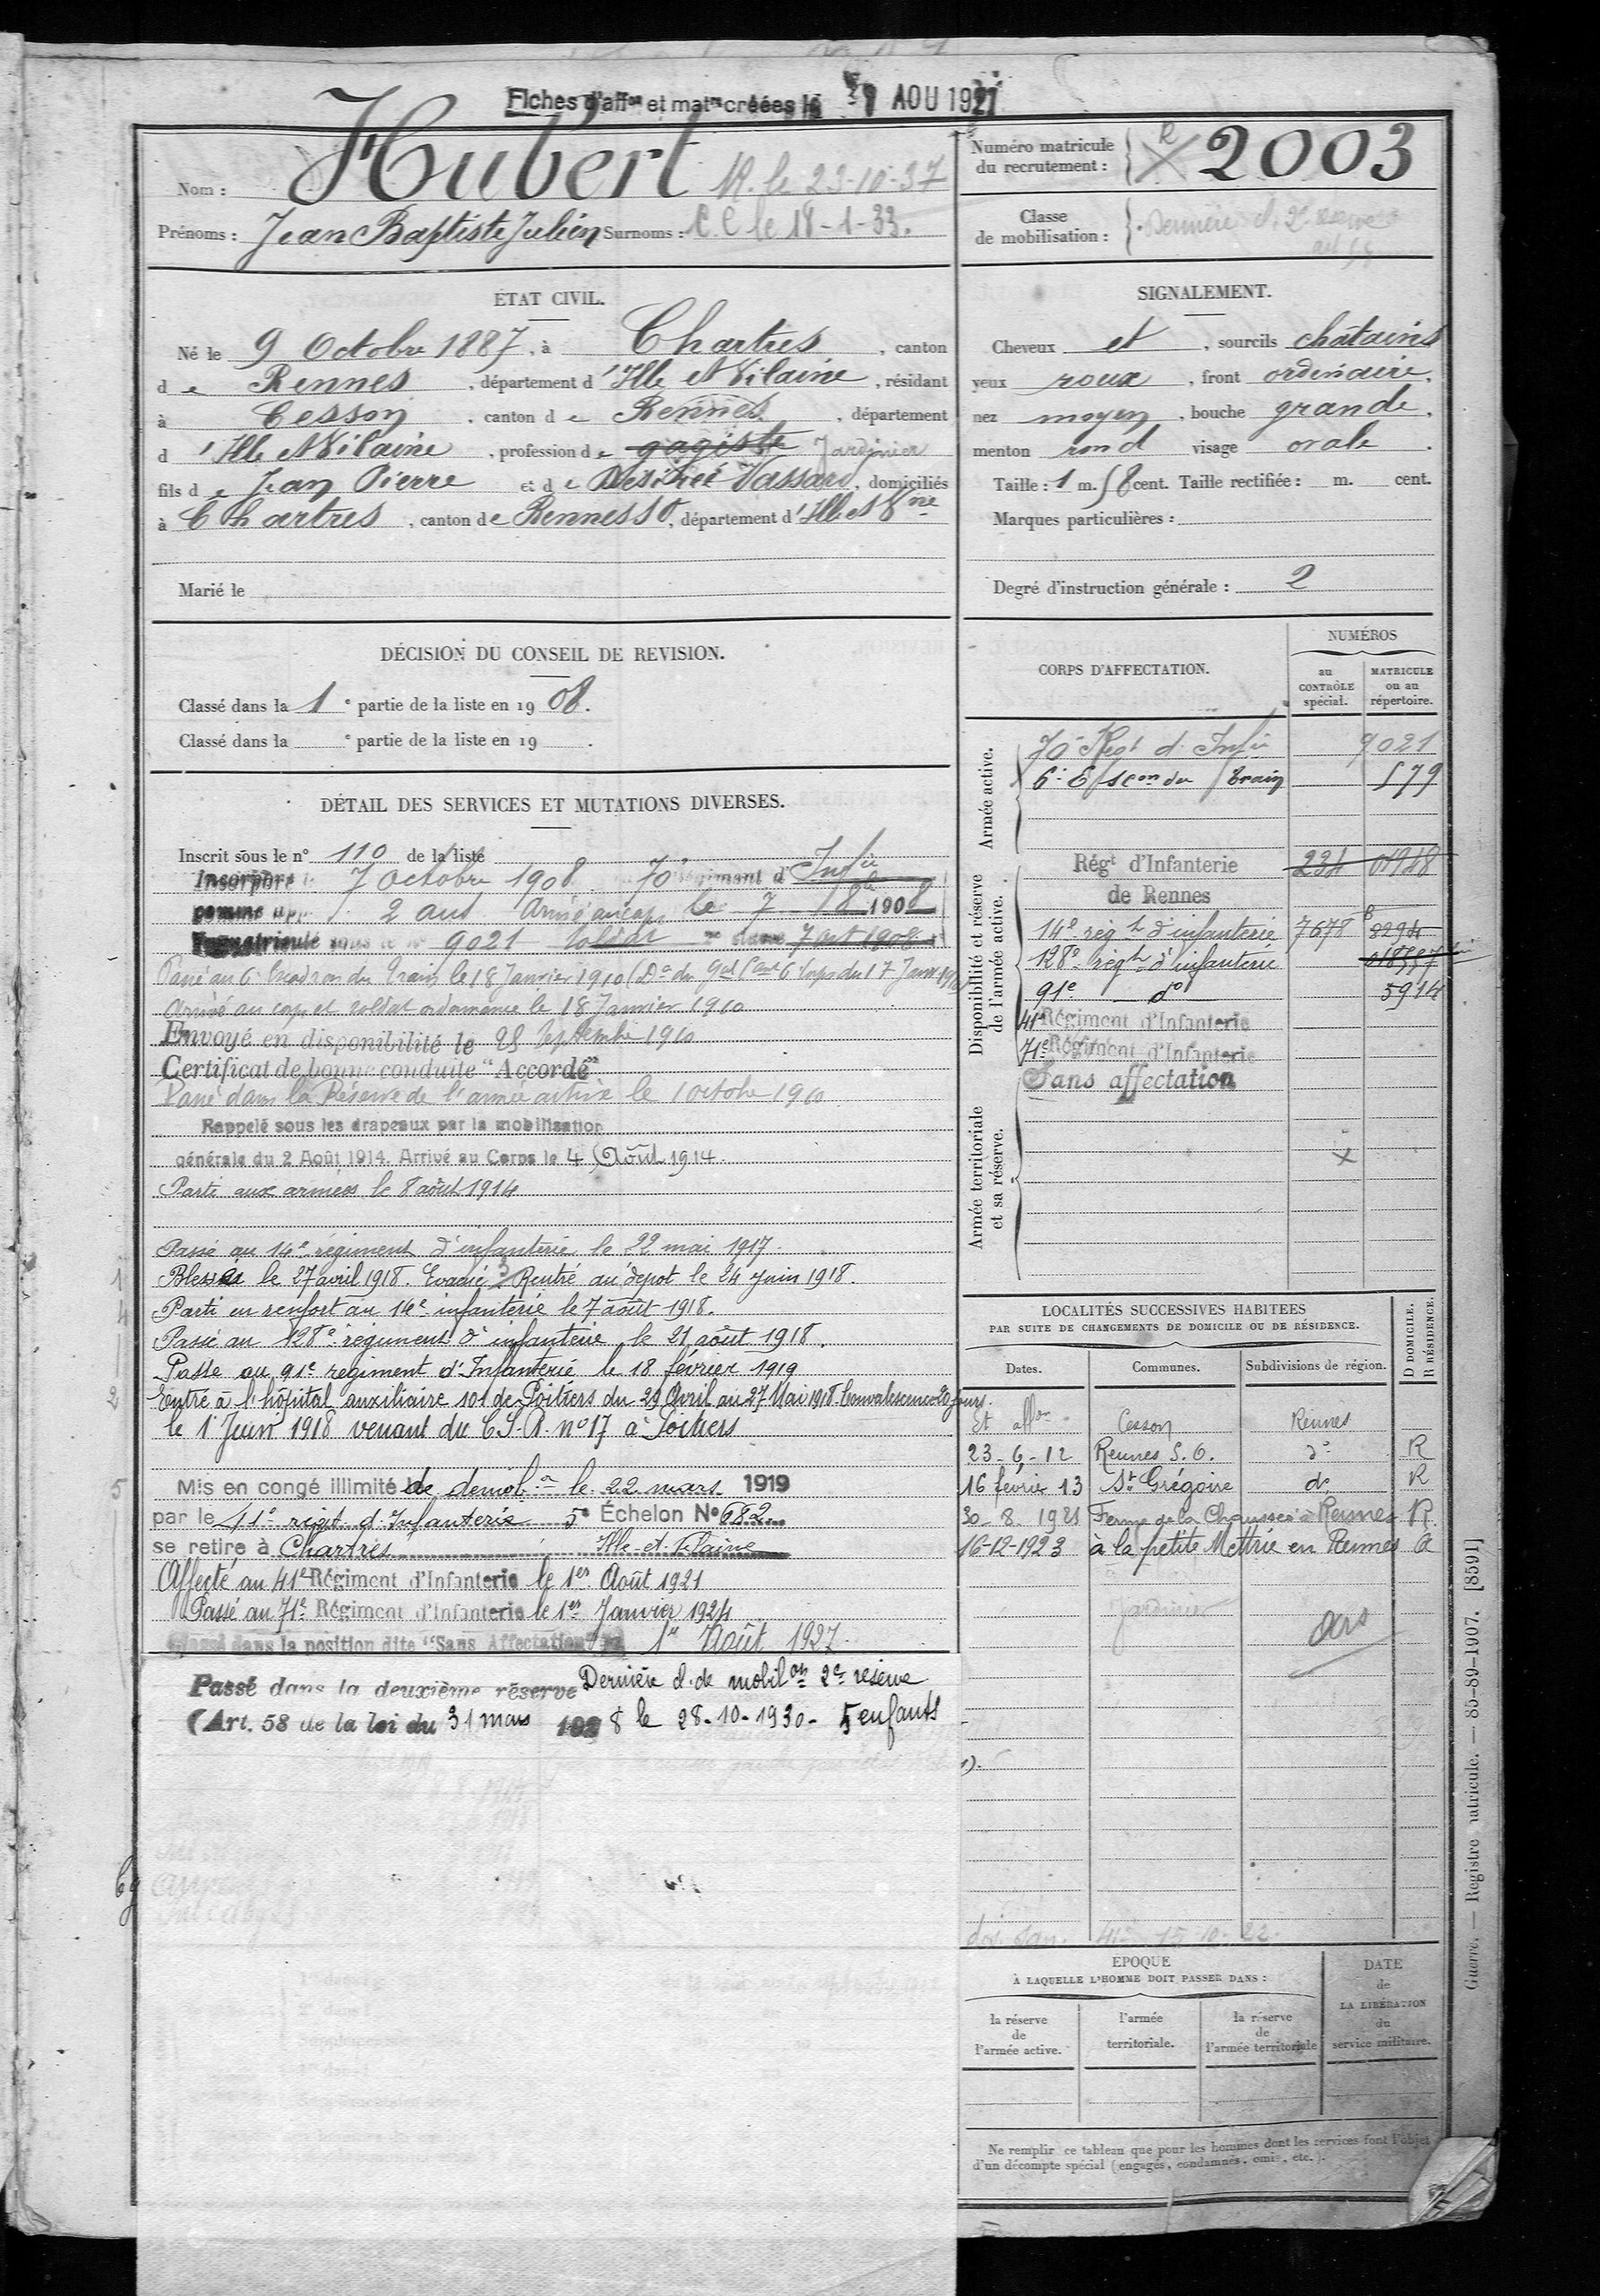 Fiches d'affon et matre créées le AOU 1921
Nom : Hubert R. le 23-10-37
Prénoms : Jean Baptiste Julien Surnoms : C. C le 18-1-33.
Numéro matricule
du recrutement : R 2003
Classe
de mobilisation : Dernière cl. 2e réserve
art 58
ÉTAT CIVIL.
Né le 9 Octobre 1887, à Chartres, canton
de Rennes, département d'Ille et Vilaine, résidant
à Cesson, canton de Rennes, département
d'Ille et Vilaine, profession de gagiste Jardinier
fils de Jean Pierre et de Désirée Vassard, domiciliés
à Chartres, canton de Rennes S O, département d'Ille et Vne
Marié le
SIGNALEMENT.
Cheveux et, sourcils châtains
yeux roux, front ordinaire,
nez moyen, bouche grande,
menton rond visage ovale.
Taille : 1 m. 58 cent. Taille rectifiée : m. cent.
Marques particulières :
Degré d'instruction générale : 2
DÉCISION DU CONSEIL DE REVISION.
Classé dans la 1e partie de la liste en 1908.
Classé dans la e partie de la liste en 19 .
DÉTAIL DES SERVICES ET MUTATIONS DIVERSES.
Inscrit sous le n° 110 de la liste
Incorporé le 7 Octobre 1908 70e Régiment d'Infie
comme app 2 ans Arrivé au corps le 7 8bre 1908
Immatriculé sous le n° 9021 soldat 2e classe 7 oct 1908
Passé au 6e Escadron du Train le 18 Janvier 1910 (Don du Gal Cant 6e Corps du 17 Janv. 1910)
Arrivé au corps et soldat ordonnance le 18 Janvier 1910
Envoyé en disponibilité le 25 Septembre 1910
Certificat de bonne conduite "Accordé"
Passé dans la Réserve de l'armée active le 1 octobre 1910
Rappelé sous les drapeaux par la mobilisation
générale du 2 Août 1914. Arrivé au Corps le 4 Août 1914.
Parti aux armées le 8 août 1914
Passé au 14e régiment d'infanterie le 22 mai 1917.
1 Blessé le 27 avril 1918. Evacué 3 Rentré au dépot le 24 juin 1918.
4 Parti en renfort au 14e infanterie le 7 août 1918.
Passé au 128e régiment d'infanterie le 21 août 1918.
Passé au 91e régiment d'Infanterie le 18 février 1919
2 Entré à l'hôpital auxiliaire 101 de Poitiers du 29 Avril au 27 Mai 1918 Convalescence 20 jours.
le 1 Juin 1918 venant du C.S.R. no 17 à Poitiers
5 Mis en congé illimité de démobon le 22 mars 1919
par le 41e régit d'Infanterie 5e Échelon N° 682
se retire à Chartres Ille-et-Vilaine
Affecté au 41e Régiment d'Infanterie le 1er Août 1921
Passé au 71e Régiment d'Infanterie le 1er Janvier 1924
Classé dans la position dite "Sans Affectation" 1er Août 1927.
Passé dans la deuxième réserve Dernière cl. de mobilon 2e réserve
(Art. 58 de la loi du 31 mars 1928 le 28-10-1930- 5 enfants
CORPS D'AFFECTATION.
NUMÉROS
au CONTRÔLE spécial.
MATRICULE ou au répertoire.
Armée active.
70e Régt d'Infie 9021
6e Escon du Train 579
Disponibilité et réserve de l'armée active.
Régt d'Infanterie 234 01948
de Rennes
14e régt d'infanterie 7678 8294
128e régt d'infanterie
91e do 5914
41e Régiment d'Infanterie
71e Régiment d'Infanterie
Sans affectation
Armée territoriale et sa réserve.
LOCALITÉS SUCCESSIVES HABITÉES
PAR SUITE DE CHANGEMENTS DE DOMICILE OU DE RÉSIDENCE.
Dates. Communes. Subdivisions de région. D DOMICILE. R RÉSIDENCE.
Et affon Cesson Rennes
23-6-12 Rennes S.O. do R
16 février 13 St Grégoire do R
30-8-1921 Ferme de la Chaussée à Rennes R
16-12-1923 à la petite Mettrie en Rennes
Jardinier
ars
41e 15-10-22.
EPOQUE
À LAQUELLE L'HOMME DOIT PASSER DANS :
la réserve de l'armée active.
l'armée territoriale.
la réserve de l'armée territoriale
DATE de LA LIBÉRATION du service militaire.
Ne remplir ce tableau que pour les hommes dont les services font l'objet
d'un décompte spécial (engagés, condamnés, omis, etc.).
Guerre. — Registre matricule. — 85-89-1907. [8591]